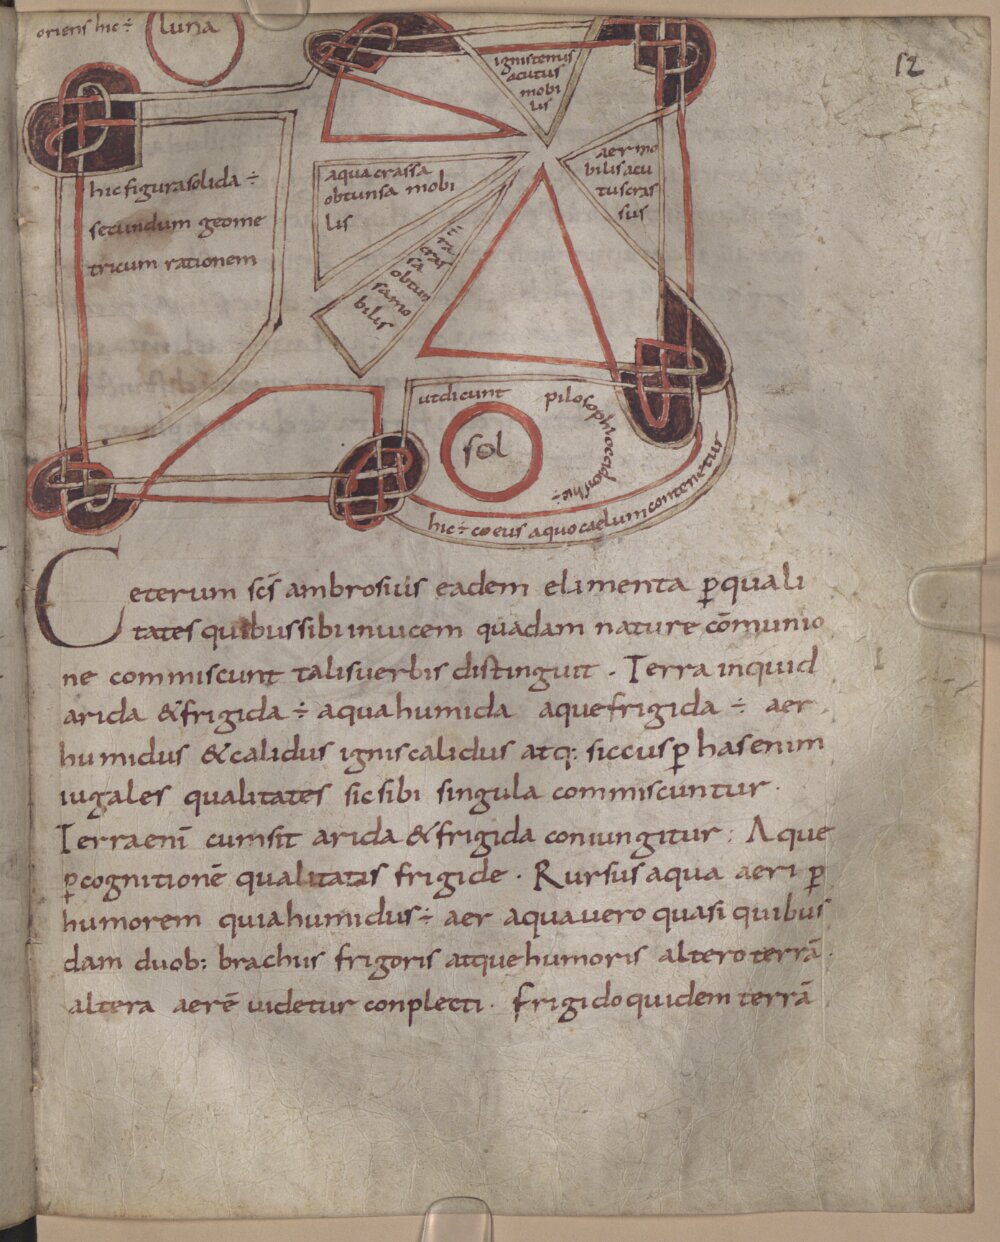 oriens hic ÷
luna
12
ignis tenuis
acutus
mobi
lis
aer mo
bilis acu
tus cras
sus
aqua crassa
obtunsa mobi
lis
cras
sa
obtun
sa mo
bilis
hic figura solida ÷
secundum geome
tricum rationem
ut dicunt pilosophi occidens hic ÷
sol
hic ÷ coeus a quo caelum contenetur
Ceterum scs̄ ambrosius eadem elimenta ꝑ quali
tates quibus sibi inuicem quadam nature cōmunio
ne commiscunt talis uerbis distinguit . Terra inquid
arida & frigida ÷ aqua humida aque frigida ÷ aer
humidus & calidus ignis calidus atq: siccus ꝑ has enim
iugales qualitates sic sibi singula commiscuntur .
Terra enī cum sit arida & frigida coniungitur : Aque
ꝑ cognitionē qualitatis frigide . Rursus aqua aeri ꝑ
humorem quia humidus ÷ aer aqua uero quasi quibus
dam duob: brachiis frigoris atque humoris altero terrā .
altera aerē uidetur conplecti . frigido quidem terrā